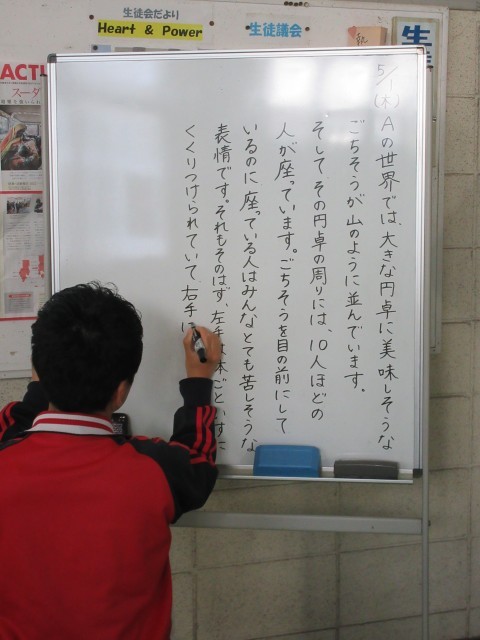 生徒会だより
Heart & Power
生徒議会
ACT
スーダ
生
5/1(木)
Aの世界では、大きな円卓に美味しそうな
ごちそうが山のように並んでいます。
そしてその円卓の周りには、10人ほどの
人が座っています。ごちそうを目の前にして
いるのに座っている人はみんなとても苦しそうな
表情です。それもそのはず、左手は体ごといすに
くくりつけられていて、右手に